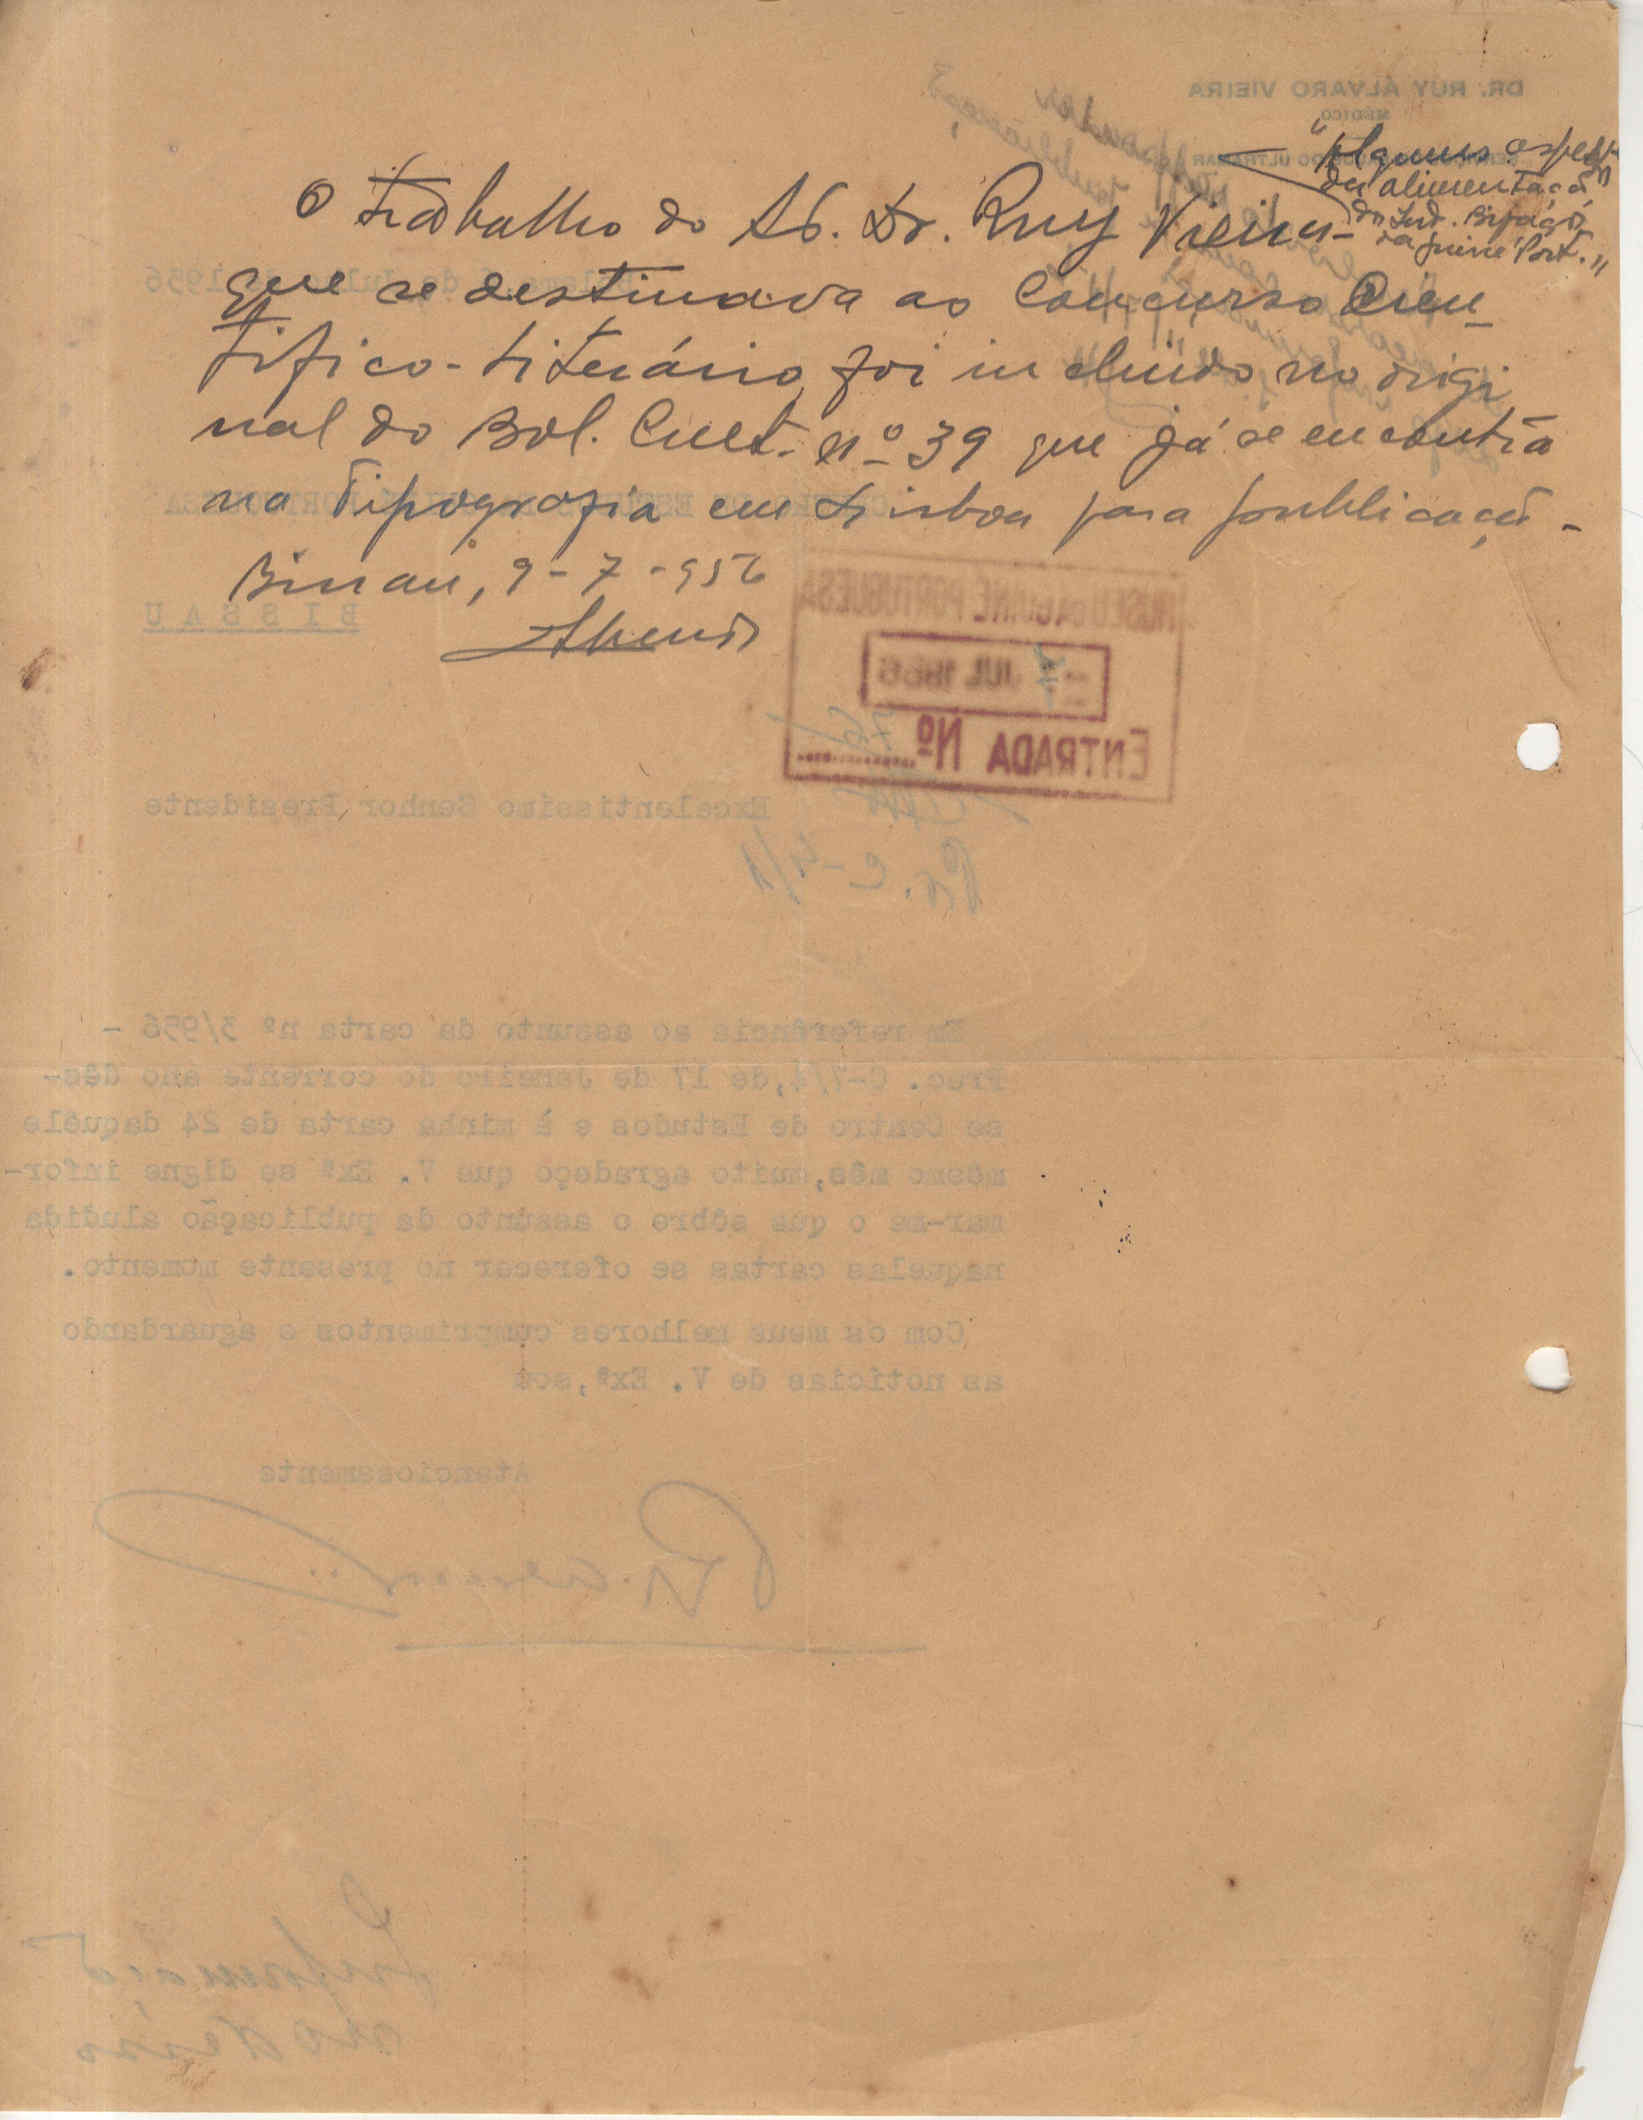 "Alguns aspetos
da alimentação
do Ind. Bijagó
da Guiné Port."
O trabalho do Sr. Dr. Ruy Vieira
que se destinava ao Concurso Cien-
tífico-Literário, foi incluído no origi
nal do Bol. Cult. nº 39 que já se encontra
na Tipografia em Lisboa para publicação -
Bissau, 9-7-956
DR. RUY ÁLVARO VIEIRA
MÉDICO
de Julho de 1956
BISSAU
MUSEU DA GUINÉ PORTUGUESA
7 JUL 1956
ENTRADA Nº 761
Excelentíssimo Senhor Presidente
Em referência ao assunto da carta nº 3/956 -
Proc. C-7/4, de 17 de Janeiro do corrente ano dês-
se Centro de Estudos e à minha carta de 24 daquêle
mêsmo mês, muito agradeço que V. Exª se digne infor-
mar-me o que sôbre o assunto da publicação aludida
naquelas cartas se oferecer no presente momento.
Com os meus melhores cumprimentos e aguardando
as notícias de V. Exª, sou
Atenciosamente
Informação
no verso